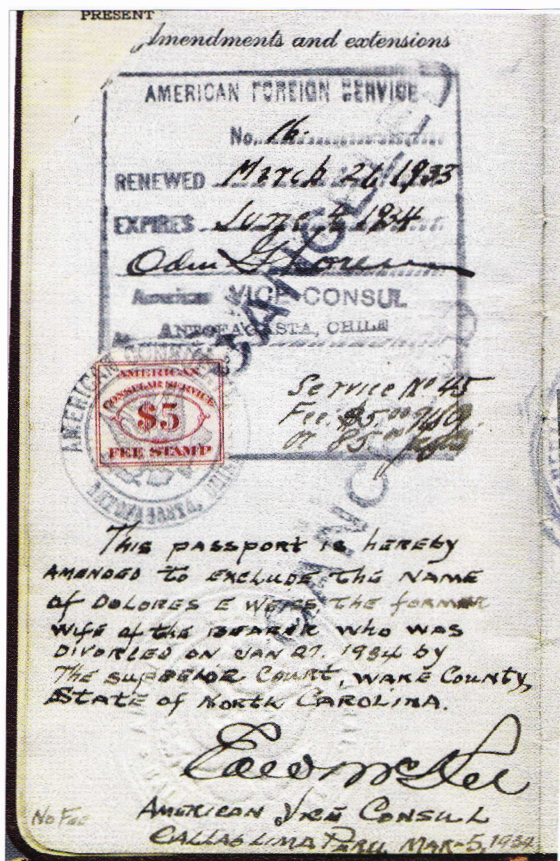 PRESENT
Amendments and extensions
AMERICAN FOREIGN SERVICE
No. 16.
RENEWED March 26, 1933
EXPIRES June 4, 1934
American VICE CONSUL
At ANTOFAGASTA, CHILE
CANCELED
AMERICAN CONSULAR SERVICE
$5
FEE STAMP
AMERICAN
Service No 45
Fee: $5.00
or 85.00
CANC
This passport is hereby
AMENDED to EXCLUDE THE NAME
of DOLORES E WEISE THE former
wife of the BEARER WHO WAS
DIVORCED ON JAN 27. 1934 by
The SUPERIOR COURT, WAKE COUNTY,
STATE of NORTH CAROLINA.
No Fee
AMERICAN VICE CONSUL
CALLAO LIMA PERU MAR-5, 1934